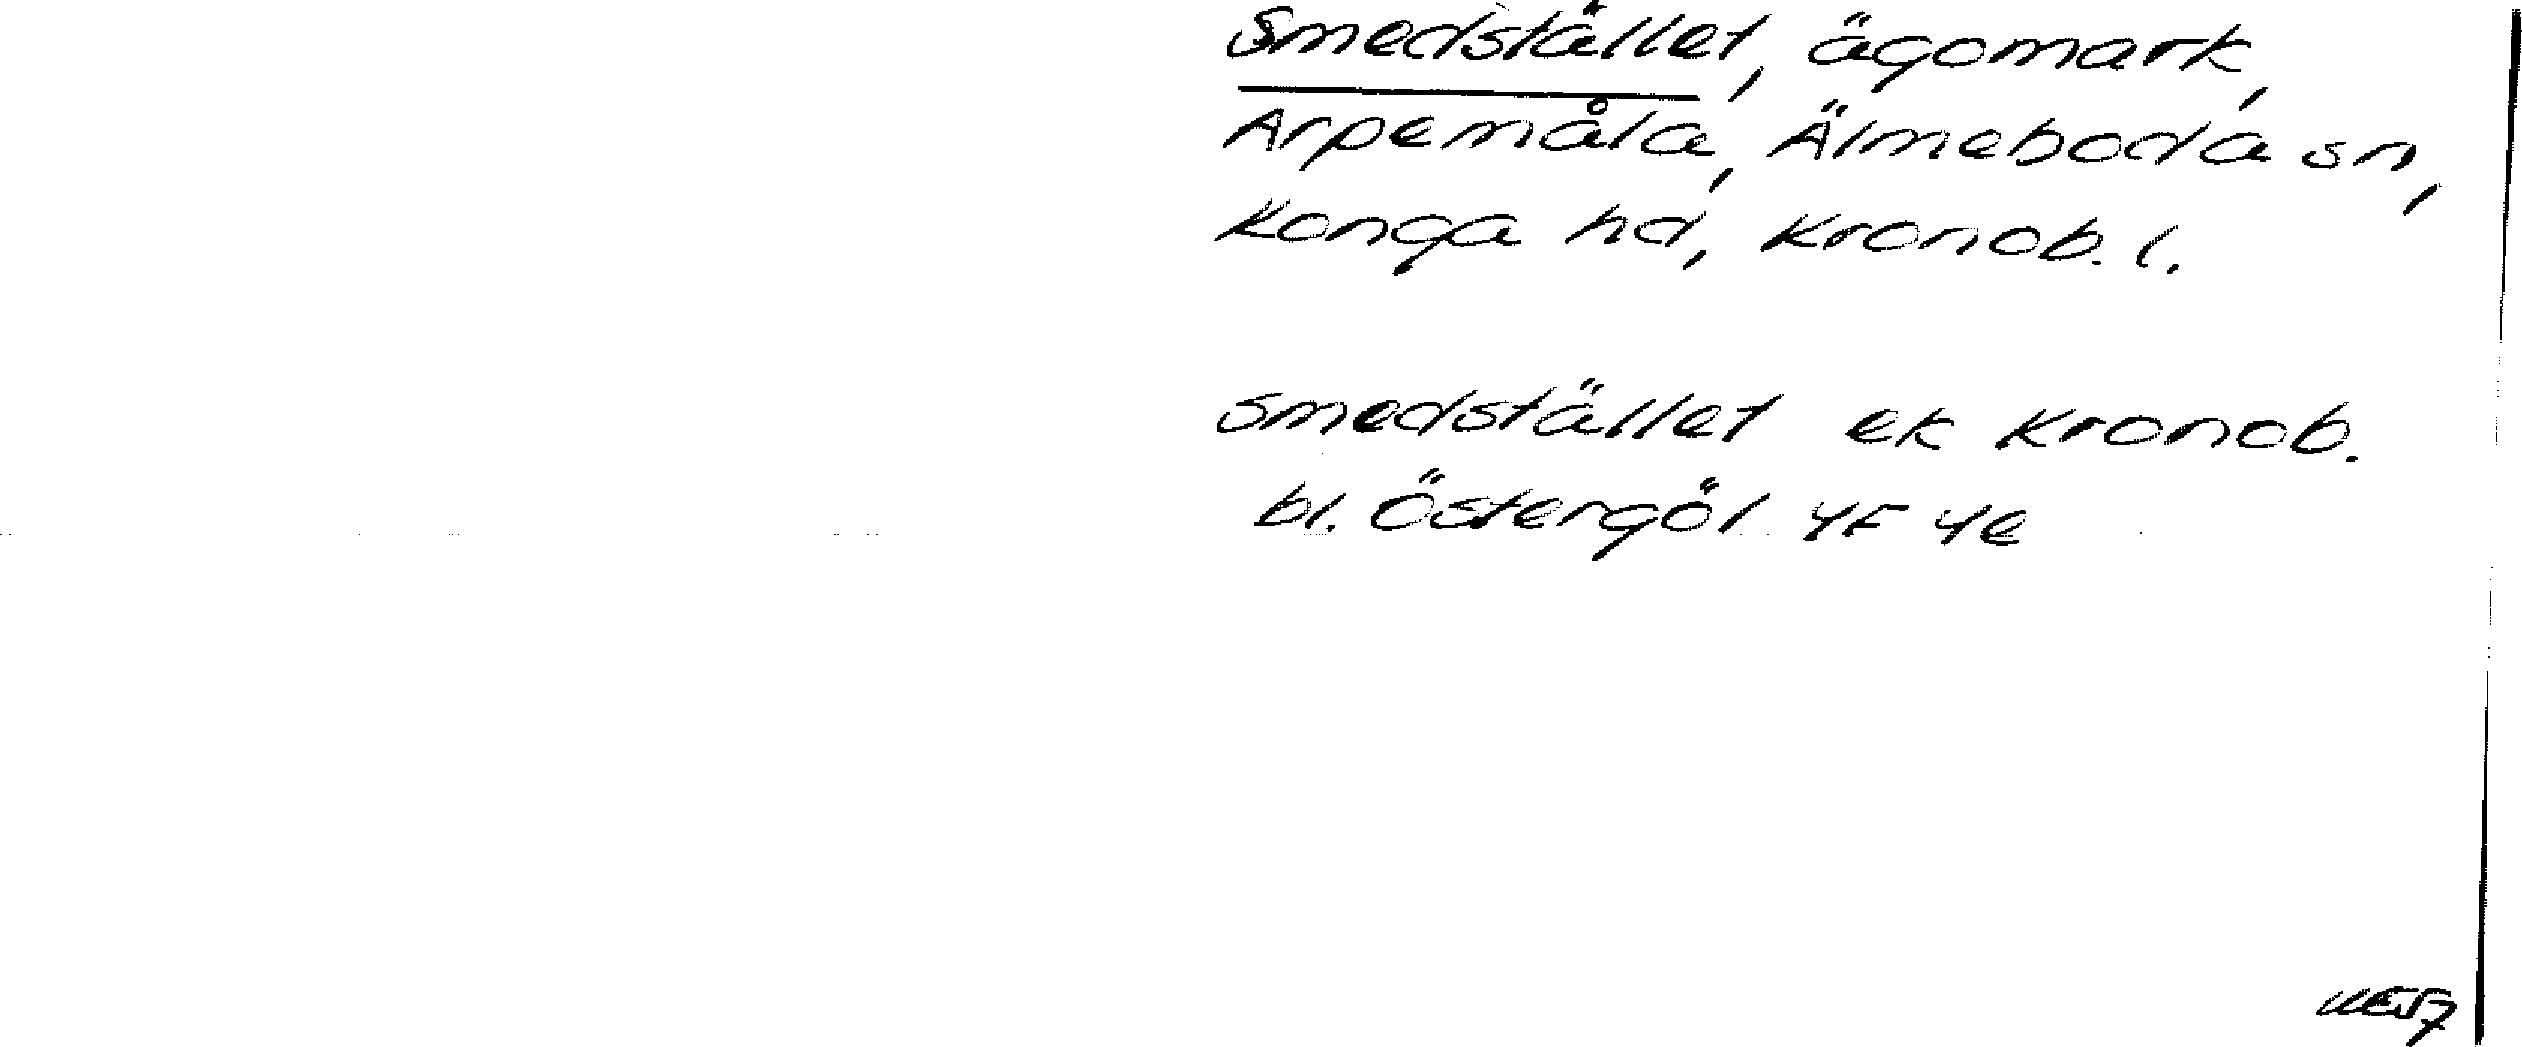 Smedstället, ägomark,
Arpemåla, Älmeboda sn,
Konga hd, Kronob. l.
Smedstället ek Kronob.
bl. Östergöl 4F 4e